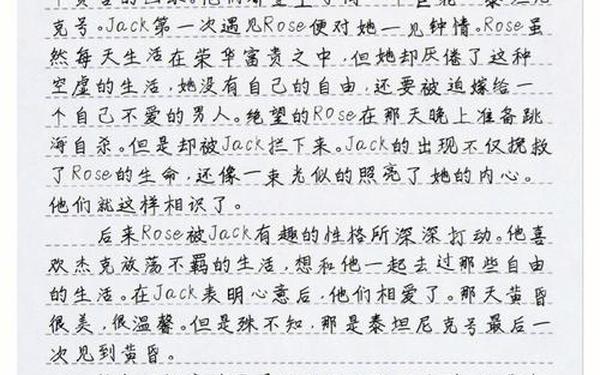 克号。Jack第一次遇见Rose便对她一见钟情。Rose虽
然每天生活在荣华富贵之中，但她却厌倦了这种
空虚的生活，她没有自己的自由，还要被迫嫁给一
个自己不爱的男人。绝望的Rose在那天晚上准备跳
海自杀。但是却被Jack拦下来。Jack的出现不仅挽救
了Rose的生命，还像一束光似的照亮了她的内心。
他们就这样相识了。
后来Rose被Jack有趣的性格所深深打动。他喜
欢杰克放荡不羁的生活，想和他一起去过那些自由
的生活。在Jack表明心意后，他们相爱了。那天黄昏
很美，很温馨。但是殊不知，那是泰坦尼克号最后一
次见到黄昏。